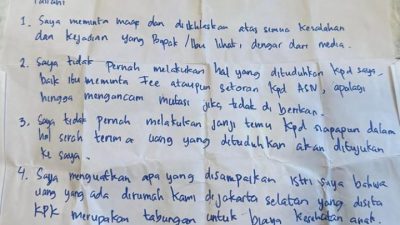 1. Saya meminta maaf dan diikhlaskan atas semua kesalahan
dan kejadian yang Bapak/Ibu lihat, dengar dari media.
2. Saya tidak Pernah melakukan hal yang dituduhkan kpd saya.
baik itu meminta Fee ataupun setoran kpd ASN, apalagi
hingga mengancam mutasi jika tidak di berikan.
3. Saya tidak pernah melakukan janji temu kpd siapapun dalam
hal serah terima uang yang dituduhkan akan ditujukan
ke saya.
4. Saya menguatkan apa yang disampaikan istri saya bahwa
uang yang ada dirumah kami dijakarta selatan yang disita
KPK merupakan tabungan untuk biaya kesehatan anak.